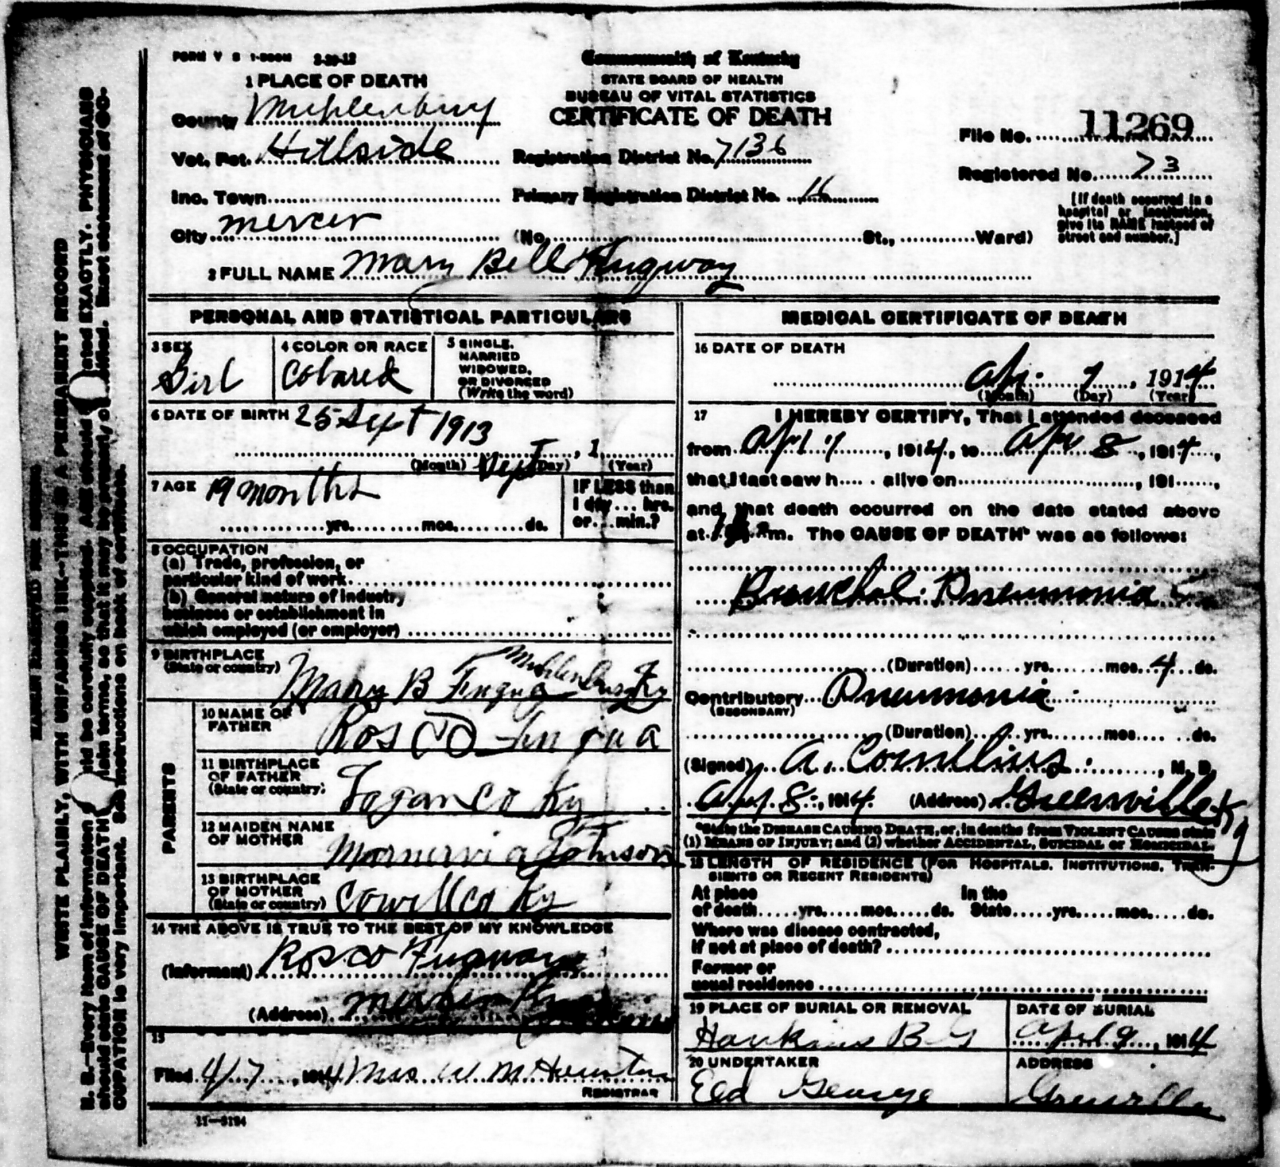 FORM V S 1-500M 2-20-12
Commonwealth of Kentucky
STATE BOARD OF HEALTH
BUREAU OF VITAL STATISTICS
CERTIFICATE OF DEATH
1 PLACE OF DEATH
County Muhlenburg
Vot. Pct. Hillside
Inc. Town
City mercer
Registration District No. 7136
Primary Registration District No. 16
(No. St., Ward)
File No. 11269
Registered No. 73
[If death occurred in a
hospital or institution,
give its NAME instead of
street and number.]
2 FULL NAME Mary Bell Fugway
PERSONAL AND STATISTICAL PARTICULARS
3 SEX
Girl
4 COLOR OR RACE
Colored
5 SINGLE,
MARRIED
WIDOWED,
OR DIVORCED
(Write the word)
6 DATE OF BIRTH 25 Sept 1913
Sept , 1
(Month) (Day) (Year)
7 AGE 19 months
yrs. mos. ds.
IF LESS than
1 day... hrs.
or... min.?
8 OCCUPATION
(a) Trade, profession, or
particular kind of work
(b) General nature of industry
business or establishment in
which employed (or employer)
9 BIRTHPLACE
(State or country)
Muhlenburg Ky
Mary B Fuqua
PARENTS
10 NAME OF
FATHER
Rosco Fuqua
11 BIRTHPLACE
OF FATHER
(State or country)
Logan co Ky
12 MAIDEN NAME
OF MOTHER
Mornervia Johnson
13 BIRTHPLACE
OF MOTHER
(State or country)
Cowell co Ky
14 THE ABOVE IS TRUE TO THE BEST OF MY KNOWLEDGE
(Informant) Rosco Fugway
(Address)
15
Filed 4/7, 1914 Mrs W. M.
REGISTRAR
11-3194
MEDICAL CERTIFICATE OF DEATH
16 DATE OF DEATH
Apr. 7, 1914
(Month) (Day) (Year)
17 I HEREBY CERTIFY, That I attended deceased
from Apr 7, 1914, to Apr 8, 1914,
that I last saw h alive on , 191 ,
and that death occurred on the date stated above
at m. The CAUSE OF DEATH* was as follows:
Bronchal Pneumonia
(Duration) yrs. mos. 4 ds.
Contributory Pneumonia
(SECONDARY)
(Duration) yrs. mos. ds.
(Signed) A. Cornelius, M. D.
Apr 8, 1914 (Address) Greenville Ky
*State the DISEASE CAUSING DEATH, or, in deaths from VIOLENT CAUSES state
(1) MEANS OF INJURY; and (2) whether ACCIDENTAL, SUICIDAL or HOMICIDAL.
18 LENGTH OF RESIDENCE (FOR HOSPITALS, INSTITUTIONS, TRAN-
SIENTS OR RECENT RESIDENTS)
At place In the
of death yrs. mos. ds. State yrs. mos. ds.
Where was disease contracted,
if not at place of death?
Former or
usual residence
19 PLACE OF BURIAL OR REMOVAL
Hawkins B G
DATE OF BURIAL
April 9, 1914
20 UNDERTAKER
Eld George
ADDRESS
Greenville
MARGIN RESERVED FOR BINDING
WRITE PLAINLY, WITH UNFADING INK--THIS IS A PERMANENT RECORD
N. B.--Every item of information should be carefully supplied. AGE should be stated EXACTLY. PHYSICIANS
should state CAUSE OF DEATH in plain terms, so that it may be properly classified. Exact statement of OC-
CUPATION is very important. See instructions on back of certificate.